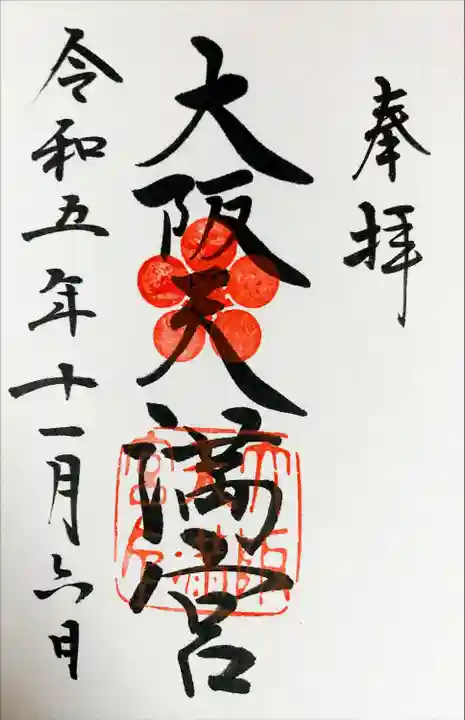 奉拝
大阪天満宮
令和五年十一月六日